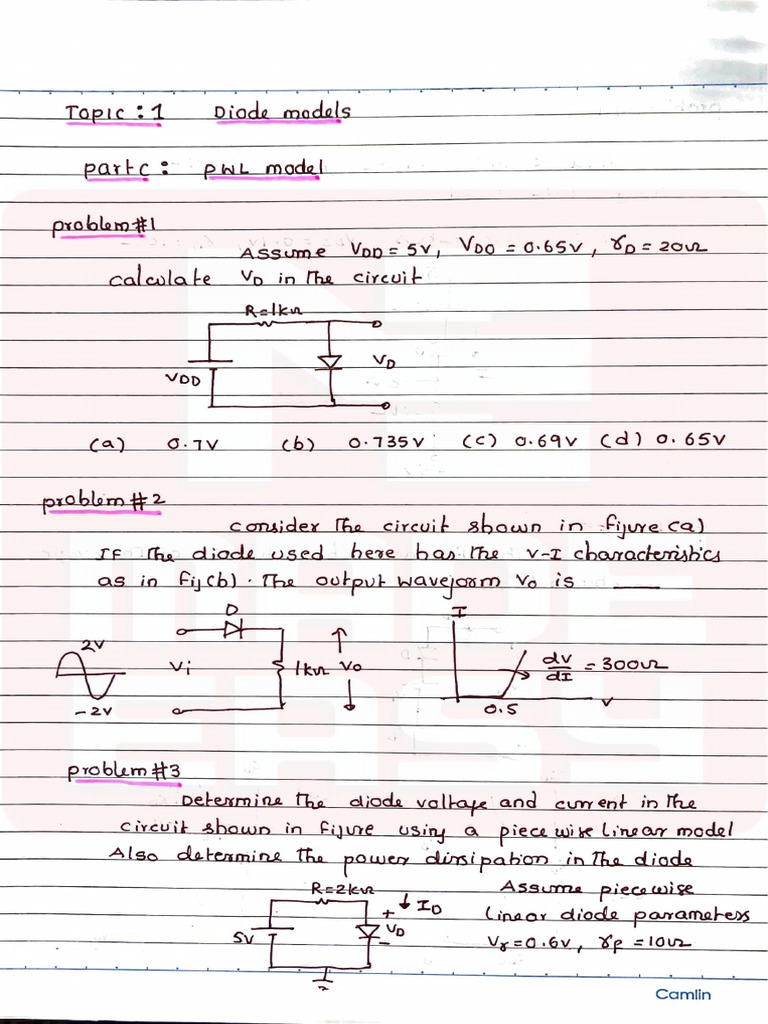 Topic : 1 Diode models
part c : PWL model
problem #1
Assume VDD = 5V, VDO = 0.65V, rD = 20Ω
calculate VD in the circuit
R=1kΩ
VDD
VD
(a) 0.7V (b) 0.735V (c) 0.69V (d) 0.65V
problem #2
consider the circuit shown in figure (a)
IF the diode used here has the V-I characteristics
as in fig(b). The output waveform Vo is ____
D
2V
-2V
Vi
1kΩ
Vo
I
dV/dI = 300Ω
0.5
V
problem #3
Determine the diode voltage and current in the
circuit shown in figure using a piece wise linear model
Also determine the power dissipation in the diode
R=2kΩ
ID
5V
+
VD
-
Assume piecewise
linear diode parameters
Vr = 0.6V, rf = 10Ω
Camlin
MADE
EASY